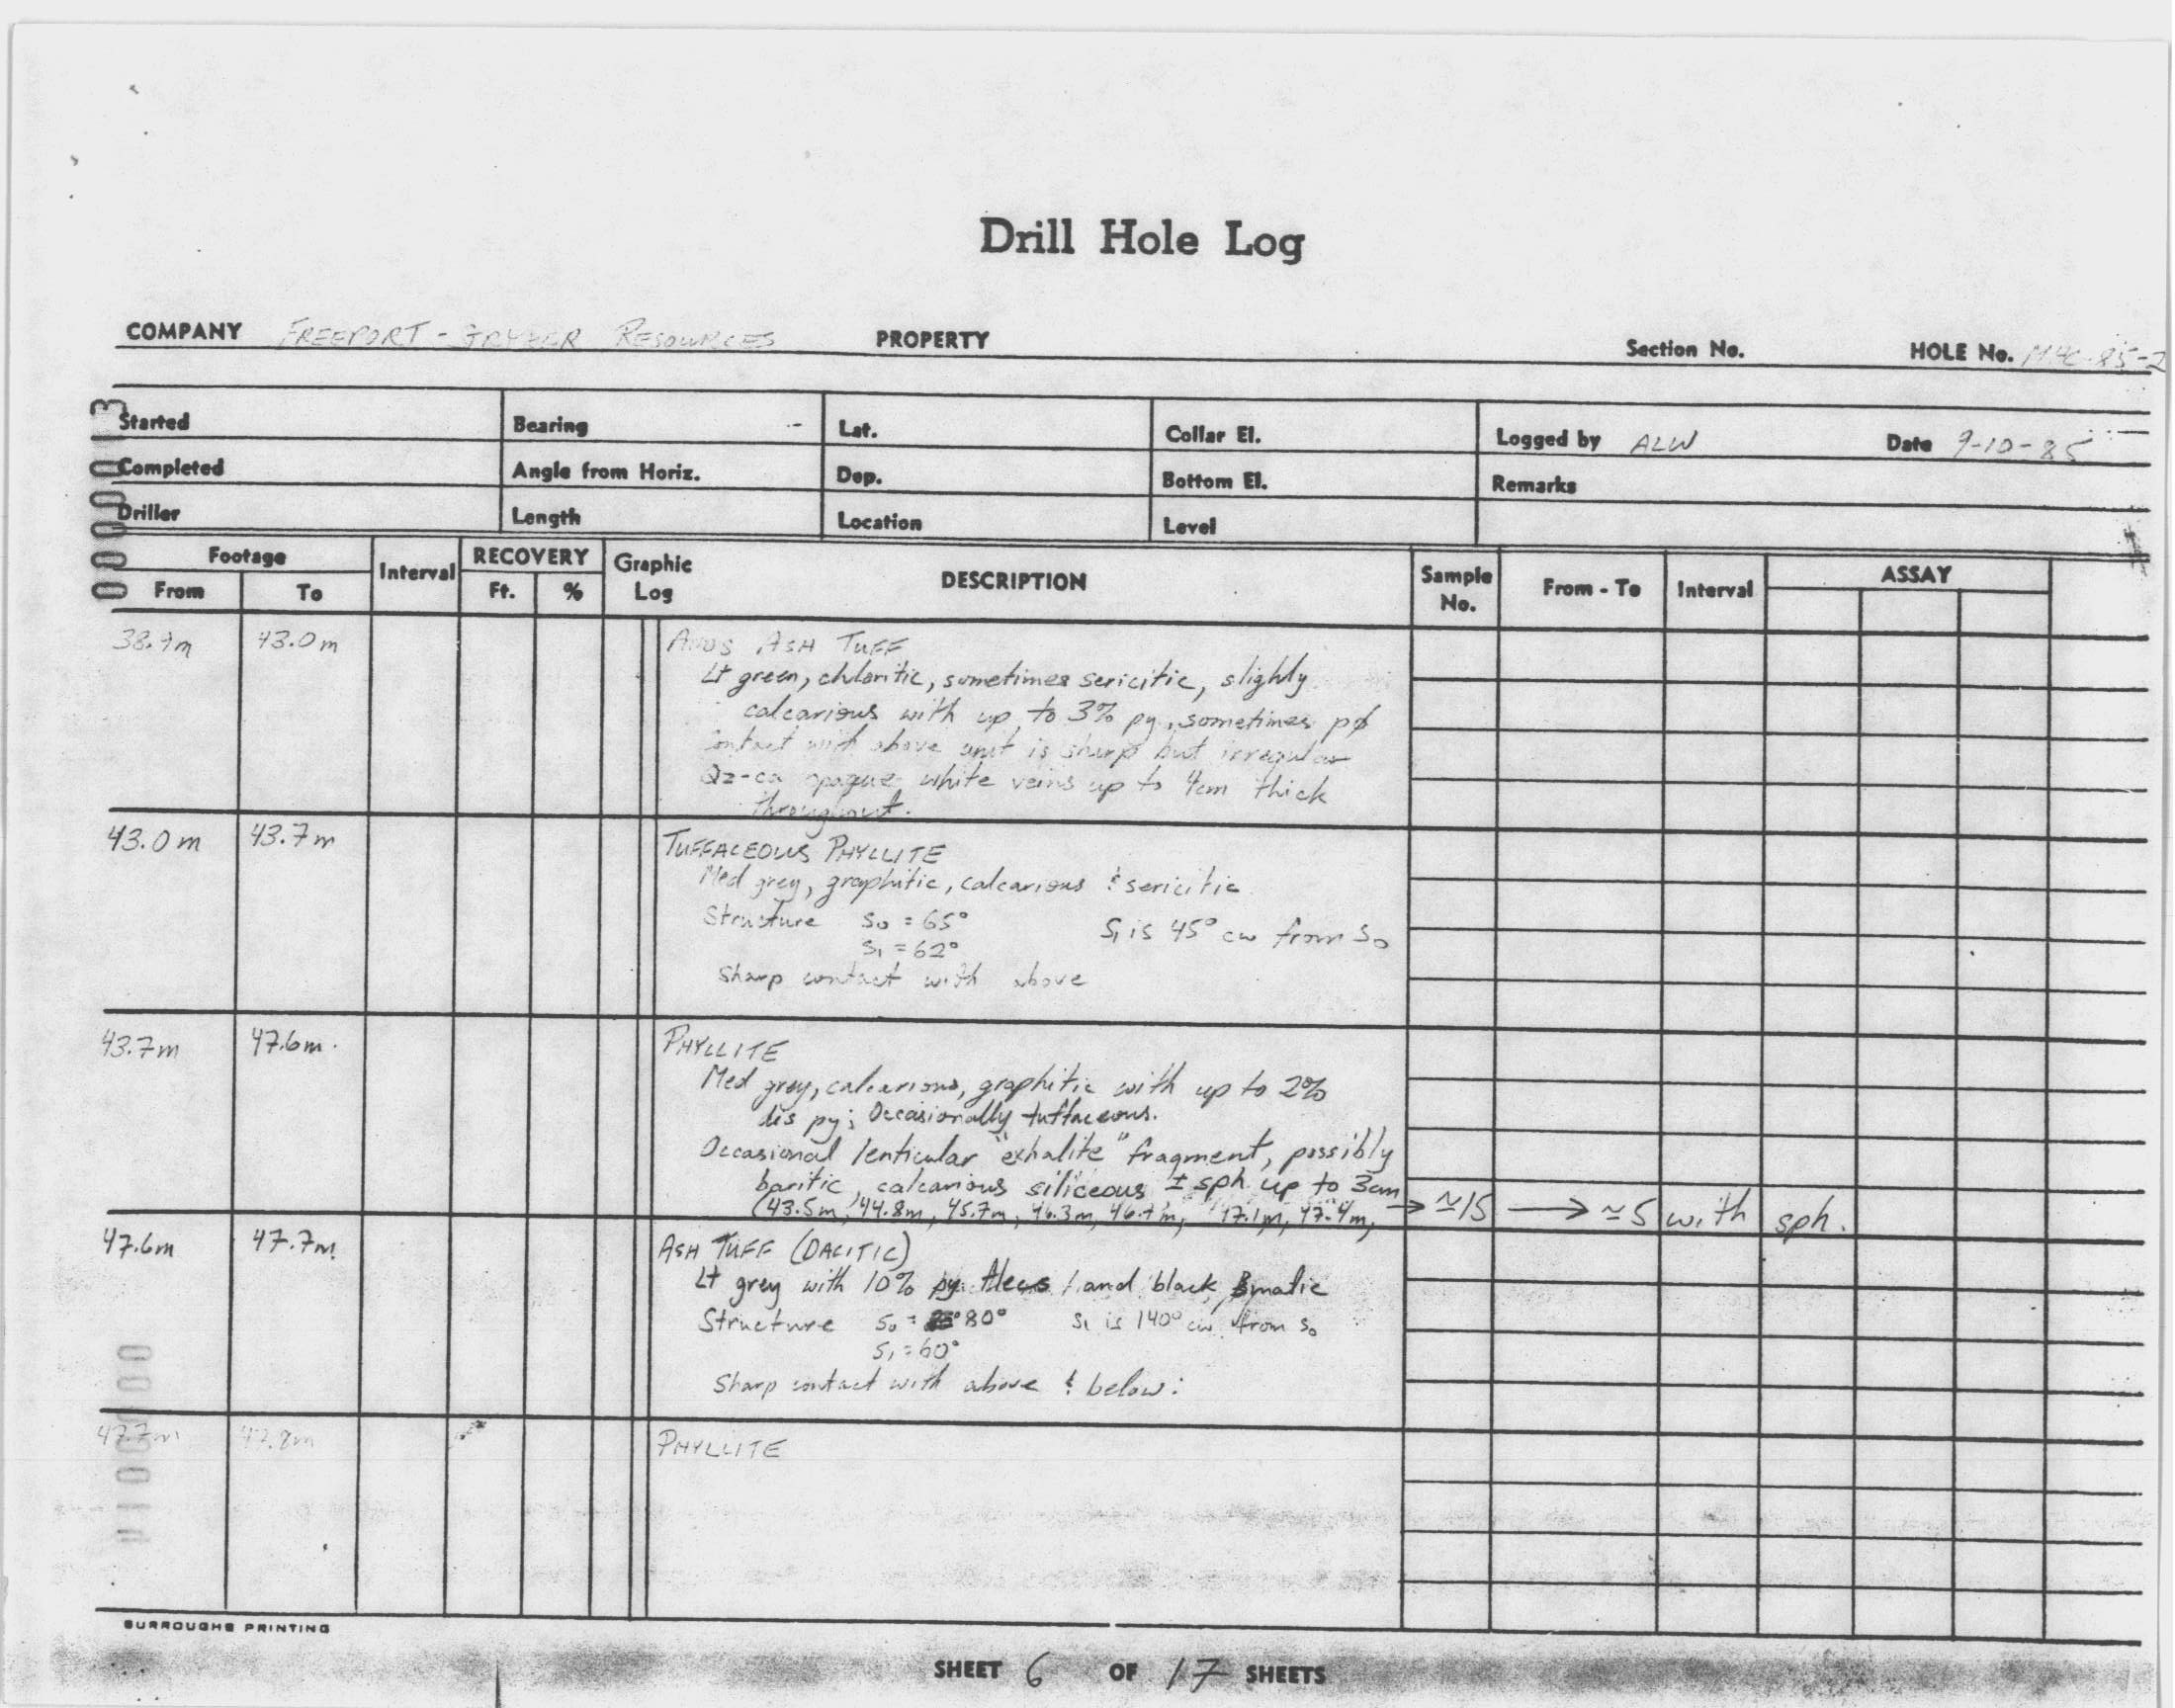 Drill Hole Log
COMPANY FREEPORT - RESOURCES PROPERTY Section No. HOLE No. 85-2
Started Bearing Lat. Collar El. Logged by ALW Date 9-10-85
Completed Angle from Horiz. Dep. Bottom El. Remarks
Driller Length Location Level
Footage Interval RECOVERY Graphic Log DESCRIPTION Sample No. From - To Interval ASSAY
From To Ft. %
38.7m 43.0m ASH TUFF
Lt green, chloritic, sometimes sericitic, slighly
calcarious with up to 3% py, sometimes pø
Contact with above unit is sharp but irregular
Qz-ca opaque white veins up to 4cm thick
throughout.
43.0m 43.7m TUFFACEOUS PHYLLITE
Med grey, graphitic, calcarious & sericitic
Structure S0 = 65° S1 is 45° cw from S0
S1 = 62°
Sharp contact with above
43.7m 47.6m PHYLLITE
Med grey, calcarious, graphitic with up to 2%
dis py; Occasionally tuffaceous.
Occasional lenticular "exhalite" fragment, possibly
baritic, calcarious siliceous ± sph up to 3cm
(43.5m, 44.8m, 45.7m, 46.3m, 46.7m, 47.1m, 47.4m, → ≃15 → ≃5 with sph.
47.6m 47.7m ASH TUFF (DACITIC)
Lt grey with 10% py and black
Structure S0 = 80° S1 is 140° cw from S0
S1 = 60°
Sharp contact with above & below:
47.7m 47.8m PHYLLITE
BURROUGHS PRINTING
SHEET 6 OF 17 SHEETS